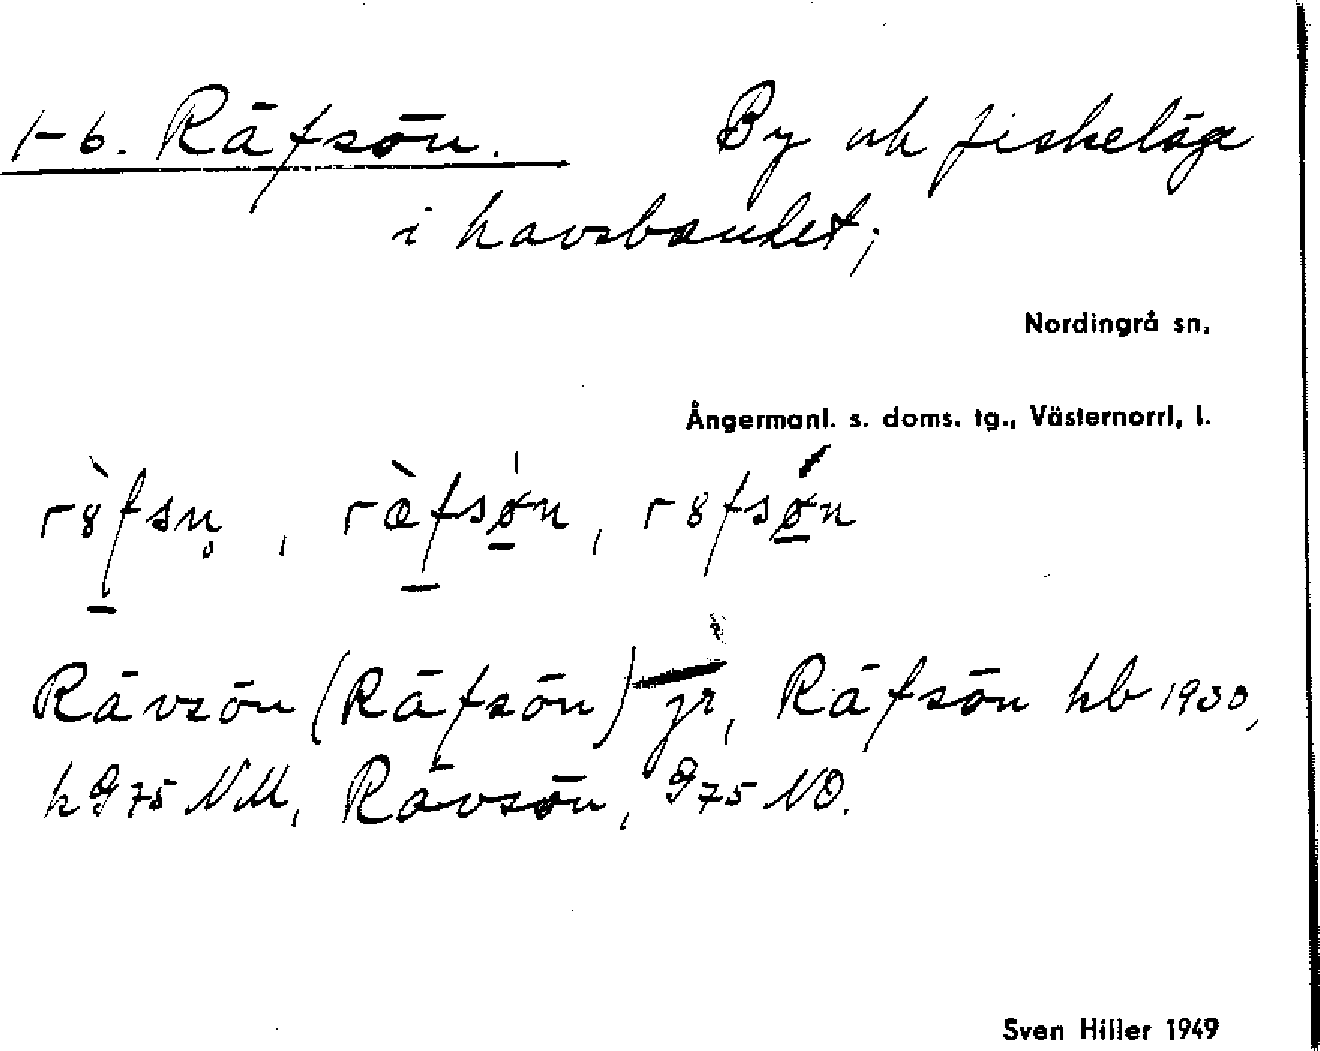 1-6. Räfsön. By och fiskeläge
i havsbandet;
Nordingrå sn.
Ångermanl. s. doms. tg., Västernorrl. l.
r8̀fsn̥, ræ̀fsøn, r8fsǿn
Rävsön (Räfsön) jr, Räfsön hb 1930,
k 975 NM, Rävsön, 975 NO.
Sven Hiller 1949